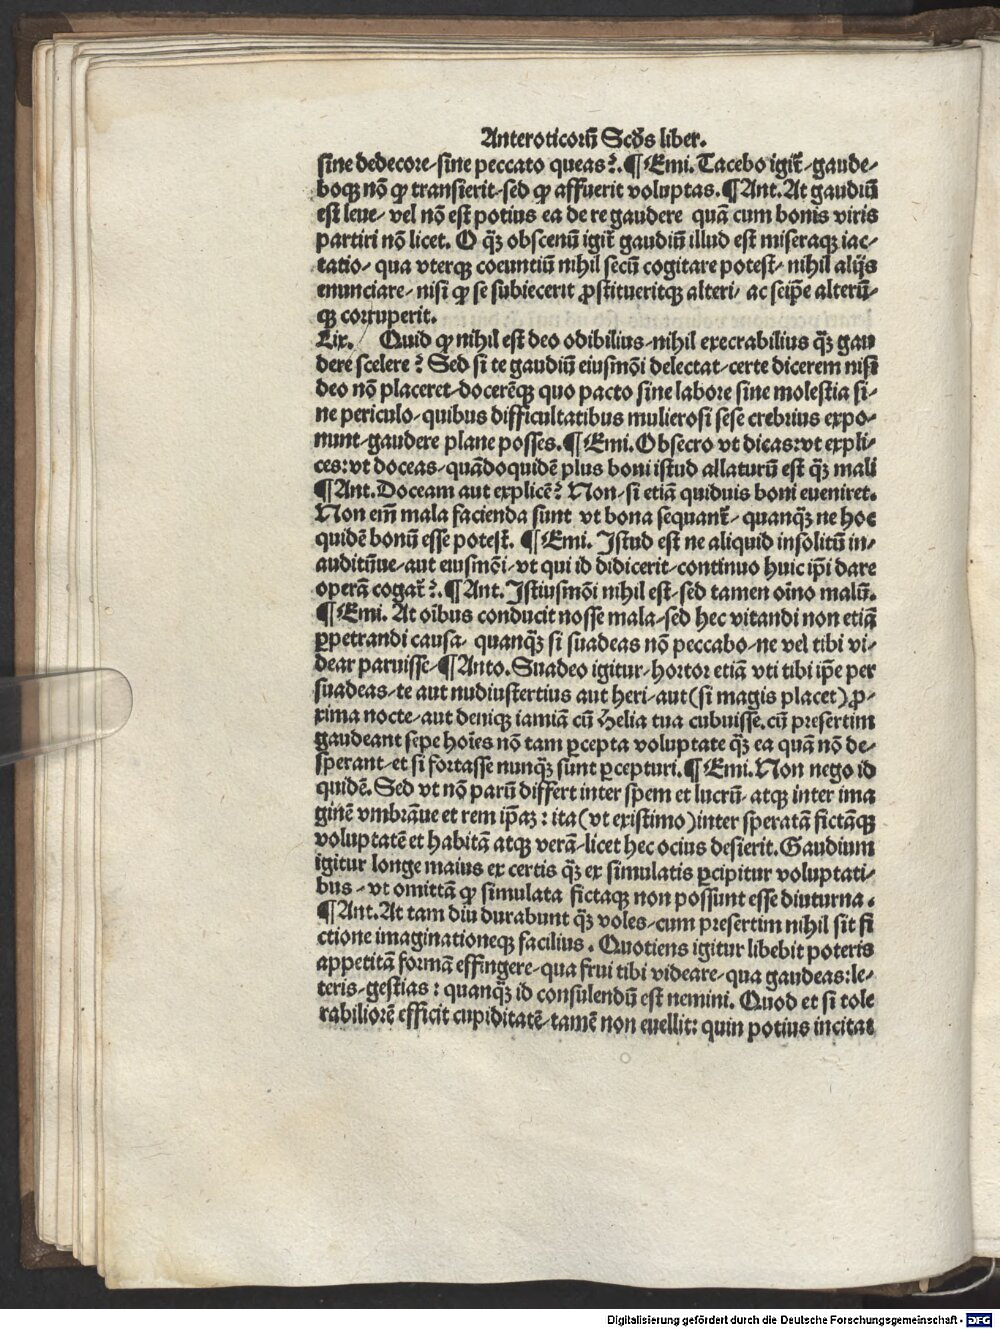 Anteroticorū Scd̄s liber.
sine dedecore⸗sine peccato queas?.¶Emi.Tacebo igit̄⸗gaude⸗
boqꝫ nō ꝙ transierit⸗sed ꝙ affuerit voluptas.¶Ant.At gaudiū
est leue⸗ vel nō est potius ea de re gaudere quā cum bonis viris
partiri nō licet. O q̄ꝫ obscenū igit̄ gaudiū illud est miseraqꝫ iac⸗
tatio⸗ qua vterqꝫ coeuntiū nihil secū cogitare potest⸗ nihil alijs
enunciare⸗ nisi ꝙ se subiecerit ꝓstitueritqꝫ alteri/ ac seip̄e alterū⸗
qꝫ corruperit.
Lix./ Quid ꝙ nihil est deo odibilius⸗nihil execrabilius q̄ꝫ gau
dere scelere? Sed si te gaudiū eiusmōi delectat⸗certe dicerem nisi
deo nō placeret⸗docerēqꝫ quo pacto sine labore sine molestia si⸗
ne periculo⸗quibus difficultatibus mulierosi sese crebrius expo⸗
nunt⸗gaudere plane posses.¶Emi.Obsecro vt dicas:vt expli⸗
ces:vt doceas⸗quādoquidē plus boni istud allaturū est q̄ꝫ mali
¶Ant.Doceam aut explicē? Non⸗si etiā quiduis boni eueniret.
Non em̄ mala facienda sunt vt bona sequant̄⸗quanq̄ꝫ ne hoc
quidē bonū esse potest. ¶Emi. Istud est ne aliquid insolitū in⸗
auditūue⸗aut eiusmōi⸗vt qui id didicerit⸗continuo huic ip̄i dare
operā cogat̄?.¶Ant.Istiusmōi nihil est⸗sed tamen oīno malū.
¶Emi. At oībus conducit nosse mala⸗sed hec vitandi non etiā
ꝑpetrandi causa⸗ quanq̄ꝫ si suadeas nō peccabo⸗ne vel tibi vi⸗
dear paruisse⸗¶Anto.Suadeo igitur⸗hortor etiā vti tibi ip̄e per
suadeas⸗te aut nudiustertius aut heri⸗aut(si magis placet)ꝓ⸗
xima nocte⸗aut deniqꝫ iamiā cū Helia tua cubuisse.cū presertim
gaudeant sepe hoīes nō tam ꝑcepta voluptate q̄ꝫ ea quā nō de⸗
sperant⸗et si fortasse nunq̄ꝫ sunt ꝑcepturi.¶Emi.Non nego id
quidē.Sed vt nō parū differt inter spem et lucrū⸗ atqꝫ inter ima
ginē vmbrāue et rem ip̄aꝫ: ita(vt existimo)inter speratā fictāqꝫ
voluptatē et habitā atqꝫ verā⸗licet hec ocius desierit.Gaudium
igitur longe maius ex certis q̄ꝫ ex simulatis ꝑcipitur voluptati⸗
bus⸗vt omittā ꝙ simulata fictaqꝫ non possunt esse diuturna.
¶Ant.At tam diu durabunt q̄ꝫ voles⸗cum presertim nihil sit fi
ctione imaginationeqꝫ facilius. Quotiens igitur libebit poteris
appetitā formā effingere⸗qua frui tibi videare⸗qua gaudeas:le⸗
teris⸗gestias: quanq̄ꝫ id consulendū est nemini. Quod et si tole
rabiliorē efficit cupiditatē⸗tamē non euellit: quin potius incitat
Digitalisierung gefördert durch die Deutsche Forschungsgemeinschaft - DFG